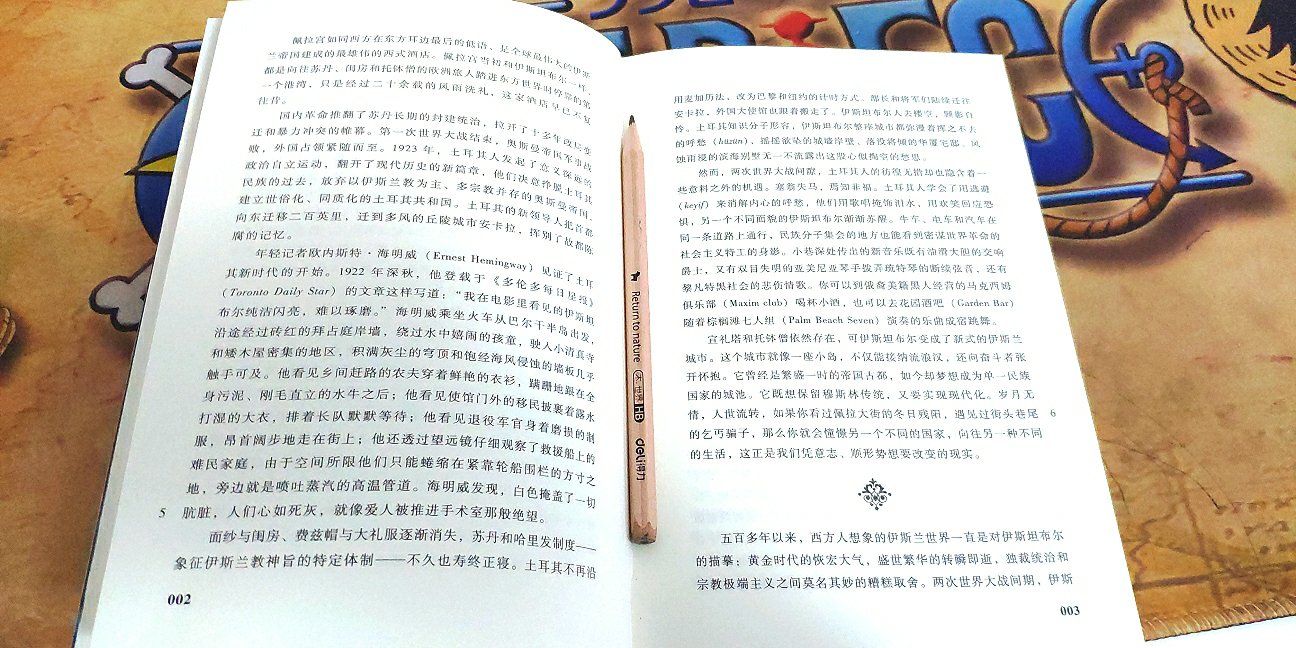 佩拉宫如同西方在东方耳边最后的低语，是全球最伟大的伊斯
兰帝国建成的最雄伟的西式酒店。佩拉宫当初和伊斯坦布尔一样，
都是向往苏丹、闺房和托钵僧的欧洲旅人踏进东方世界时停靠的第
一个港湾，只是经过二十余载的风雨洗礼，这家酒店早已不复
往昔。
国内革命推翻了苏丹长期的封建统治，拉开了十多年政局变
迁和暴力冲突的帷幕。第一次世界大战结束，奥斯曼帝国军事战
败，外国占领紧随而至。1923 年，土耳其人发起了意义深远的
政治自立运动，翻开了现代历史的新篇章，他们决意挣脱土耳其
民族的过去，放弃以伊斯兰教为主、多宗教并存的奥斯曼帝国，
建立世俗化、同质化的土耳其共和国。土耳其的新领导人把首都
向东迁移二百英里，迁到多风的丘陵城市安卡拉，挥别了故都陈
腐的记忆。
年轻记者欧内斯特·海明威（Ernest Hemingway）见证了土耳
其新时代的开始。1922 年深秋，他登载于《多伦多每日星报》
（Toronto Daily Star）的文章这样写道：“我在电影里看见的伊斯坦
布尔纯洁闪亮，难以琢磨。”海明威乘坐火车从巴尔干半岛出发，
沿途经过砖红的拜占庭岸墙，绕过水中嬉闹的孩童，驶入小清真寺
和矮木屋密集的地区，积满灰尘的穹顶和饱经海风侵蚀的墙板几乎
触手可及。他看见乡间赶路的农夫穿着鲜艳的衣衫，蹒跚地跟在全
身污泥、刚毛直立的水牛之后；他看见使馆门外的移民披裹着露水
打湿的大衣，排着长队默默等待；他看见退役军官身着磨损的制
服，昂首阔步地走在街上；他还透过望远镜仔细观察了救援船上的
难民家庭，由于空间所限他们只能蜷缩在紧靠轮船围栏的方寸之
地，旁边就是喷吐蒸汽的高温管道。海明威发现，白色掩盖了一切
5 肮脏，人们心如死灰，就像爱人被推进手术室那般绝望。
面纱与闺房、费兹帽与大礼服逐渐消失，苏丹和哈里发制度——
象征伊斯兰教神旨的特定体制——不久也寿终正寝。土耳其不再沿
002
Return to nature
HB
deli得力
用麦加历法，改为巴黎和纽约的计时方式。部长和将军们陆续迁往
安卡拉，外国大使馆也跟着搬走了。伊斯坦布尔人去楼空，顾影自
怜。土耳其知识分子形容，伊斯坦布尔整座城市都弥漫着挥之不去
的呼愁（hüzün），摇摇欲坠的城墙岸壁、落没将倾的华厦宅邸、风
蚀雨浸的滨海别墅无一不流露出这股心似掏空的愁思。
然而，两次世界大战间隙，土耳其人的彷徨无措却也隐含着一
些意料之外的机遇。塞翁失马，焉知非福。土耳其人学会了用逃避
（keyif）来消解内心的呼愁，他们用歌唱掩饰泪水，用欢笑回应恐
惧，另一个不同面貌的伊斯坦布尔渐渐苏醒。牛车、电车和汽车在
同一条道路上通行，民族分子集会的地方也能看到密谋世界革命的
社会主义特工的身影。小巷深处传出的新音乐既有油滑大胆的交响
爵士，又有双目失明的亚美尼亚琴手拨弄琉特琴的断续弦音，还有
黎凡特黑社会的悲伤情歌。你可以到俄裔美籍黑人经营的马克西姆
俱乐部（Maxim club）喝杯小酒，也可以去花园酒吧（Garden Bar）
随着棕榈滩七人组（Palm Beach Seven）演奏的乐曲成宿跳舞。
宣礼塔和托钵僧依然存在，可伊斯坦布尔变成了新式的伊斯兰
城市。这个城市就像一座小岛，不仅能接纳流浪汉，还向奋斗者张
开怀抱。它曾经是繁盛一时的帝国古都，如今却梦想成为单一民族
国家的城池。它既想保留穆斯林传统，又要实现现代化。岁月无
情，人世流转，如果你看过佩拉大街的冬日残阳，遇见过街头巷尾 6
的乞丐骗子，那么你就会憧憬另一个不同的国家，向往另一种不同
的生活，这正是我们凭意志、顺形势想要改变的现实。
五百多年以来，西方人想象的伊斯兰世界一直是对伊斯坦布尔
的描摹：黄金时代的恢宏大气，盛世繁华的转瞬即逝，独裁统治和
宗教极端主义之间莫名其妙的糟糕取舍。两次世界大战间期，伊斯
003